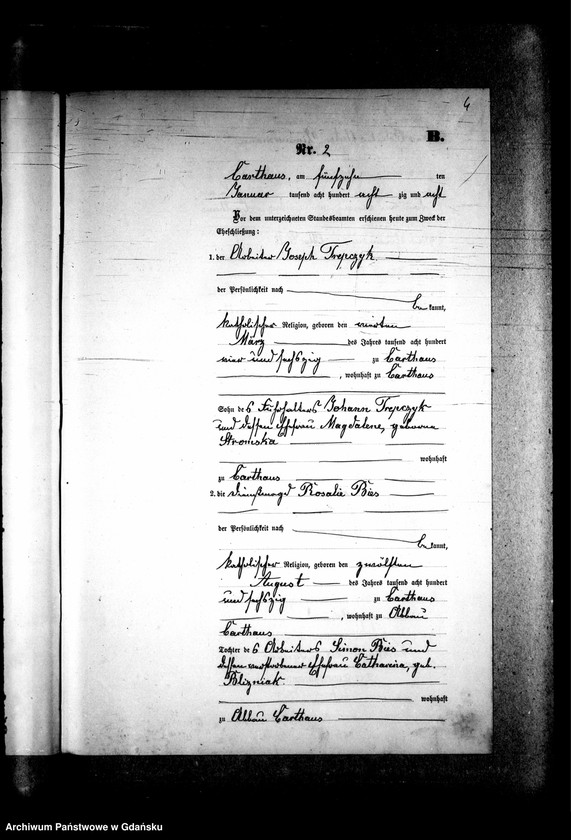 4
B.
Nr. 2
Carthaus, am fünfzehn ten
Januar tausend acht hundert acht zig und acht
Vor dem unterzeichneten Standesbeamten erschienen heute zum Zweck der
Eheschließung:
1. der Arbeiter Joseph Trepczyk
der Persönlichkeit nach
be kannt,
katholischer Religion, geboren den vierten
März des Jahres tausend acht hundert
vier und sechszig zu Carthaus
, wohnhaft zu Carthaus
Sohn des Johann Trepczyk
und dessen Ehefrau Magdalene, geborene
Stromska
wohnhaft
zu Carthaus
2. die Dienstmagd Rosalie Bies
der Persönlichkeit nach
be kannt,
katholischer Religion, geboren den zwölften
August des Jahres tausend acht hundert
und sechszig zu Carthaus
, wohnhaft zu Abbau
Carthaus
Tochter des Arbeiters Simon Bies und
dessen verstorbener Ehefrau Catharina, geb.
Blizniak
wohnhaft
zu Abbau Carthaus
Archiwum Państwowe w Gdańsku